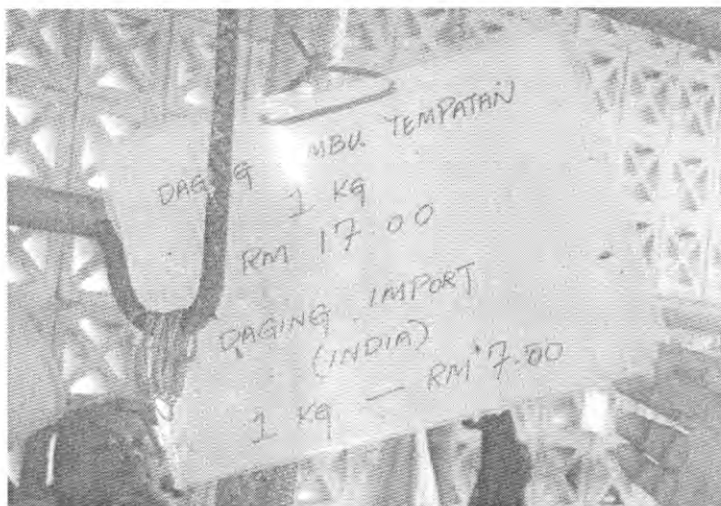 DAGING MBU TEMPATAN
1 KG
RM 17.00
DAGING IMPORT
(INDIA)
1 KG — RM 7.50